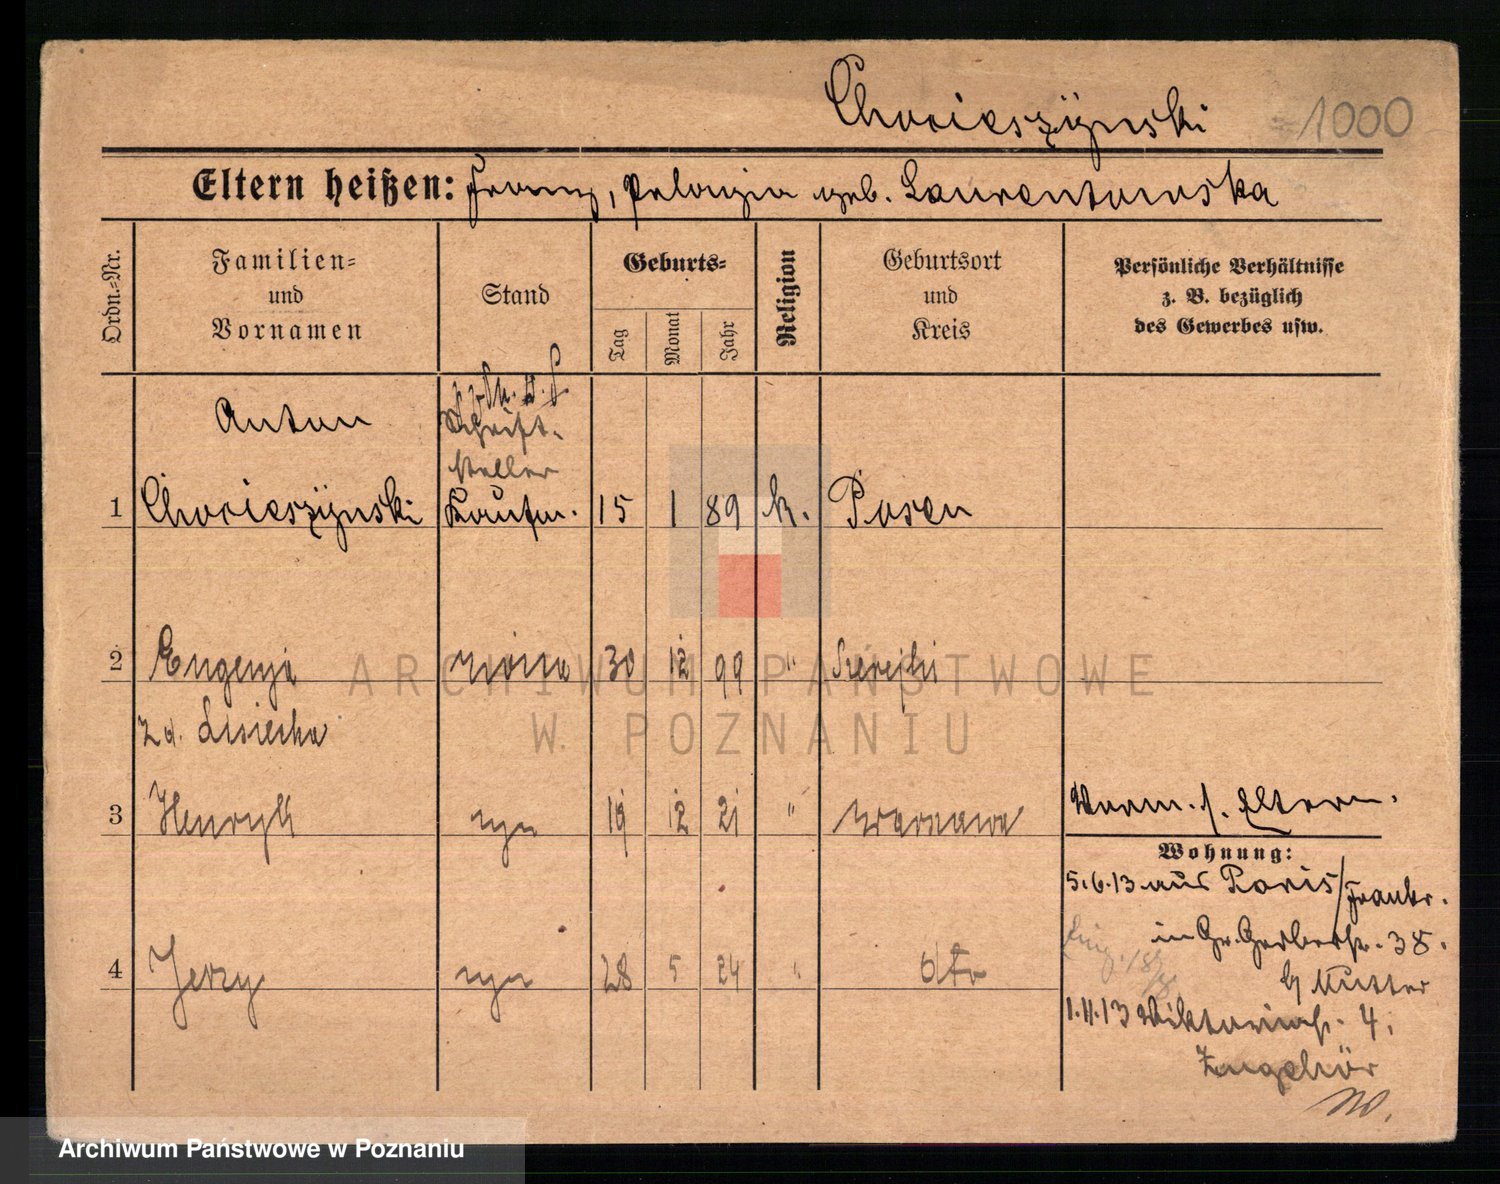 Chocieszÿnski 1000
Eltern heißen: Franz, Pelagia geb. Laurentowska
Ordn.-Nr.
Familien- und Vornamen
Stand
Geburts-
Tag
Monat
Jahr
Religion
Geburtsort und Kreis
Persönliche Verhältnisse z. B. bezüglich des Gewerbes usw.
Anton
Schrift-
steller
1 Chocieszÿnski Kaufm. 15 1 89 k. Posen
2 Eugenja żona 30 12 99 "
zd.
3 Henryk syn 19 12 21 " Warszawa
Vorm. s. Eltern.
Wohnung:
5.6.13 aus Paris/Frankr.
in Gr. Gerberstr. 38.
b/ Mutter
4 Jerzy syn 28 5 24 "
1.11.13 Viktoriastr. 4.
Zugehör
ARCHIWUM PAŃSTWOWE
W POZNANIU
Archiwum Państwowe w Poznaniu